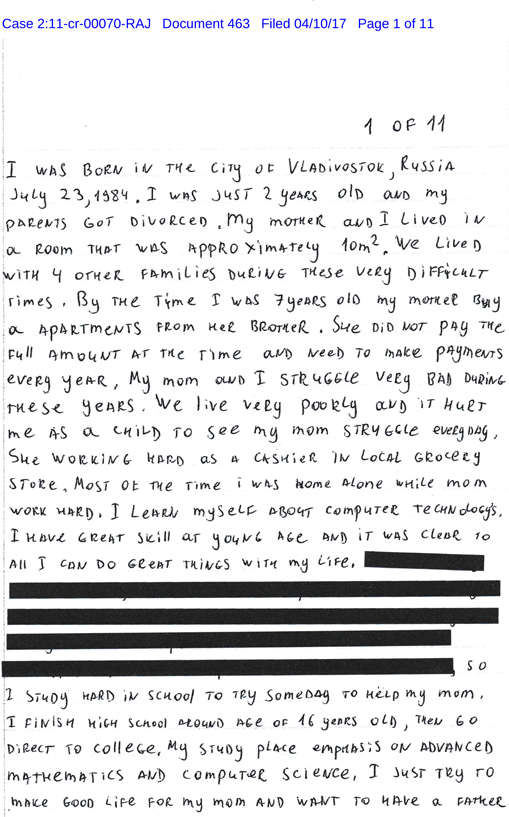 Case 2:11-cr-00070-RAJ Document 463 Filed 04/10/17 Page 1 of 11
1 OF 11
I WAS BORN iN THE CiTy OF VLADiVOSTOK, RUSSiA
July 23, 1984. I WAS JUST 2 yeARS OlD AND my
PARENTS GOT DiVORCED. My moTHER AND I LiVED iN
a ROOM THAT WAS APPROXiMATELY 10m². We LiVED
WiTH 4 OTHER FAMiLiES DURiNG THESE VERY DiFFiCULT
Times. By THE Time I WAS 7 yeARS OlD my moTHER Buy
a APARTMENTS FROM HER BROTHER. SHE DiD NOT PAY THE
Full AMOUNT AT THE Time AND NeeD TO mAKE PAYMENTS
eveRy yeAR, My mom AND I STRUGGLE VeRy BAD DURiNG
THESE yeARS. We live veRy POORly AND iT HURT
me AS a CHiLD TO See my mom STRUGGLE eveRyDAy,
SHE WORKiNG HARD AS A CASHieR iN LOCAL GROCeRy
STORe. MOST OF THE Time i WAS Home Alone WHiLe mom
WORK HARD. I LeARN mySelF ABOUT COmpuTeR TeCHNOlOgyS.
I HAVe GReAT SKill AT yOUNG AGe AND iT WAS CleAR TO
All I CAN DO GReAT THiNGS WiTH my LiFe.
, SO
I STUDy HARD iN SCHOOl TO TRy SomeDAy TO HElp my mom.
I FiNiSH HiGH SCHOOl AROUND AGe OF 16 yeARS OLD, THeN GO
DiReCT TO COllege. My STUDy plACe empHASiS ON ADVANCeD
mATHemATiCS AND COmpuTeR SCieNCe. I JUST TRy TO
mAKe GOOD LiFe FOR my mom AND WANT TO HAVe a FATHeR